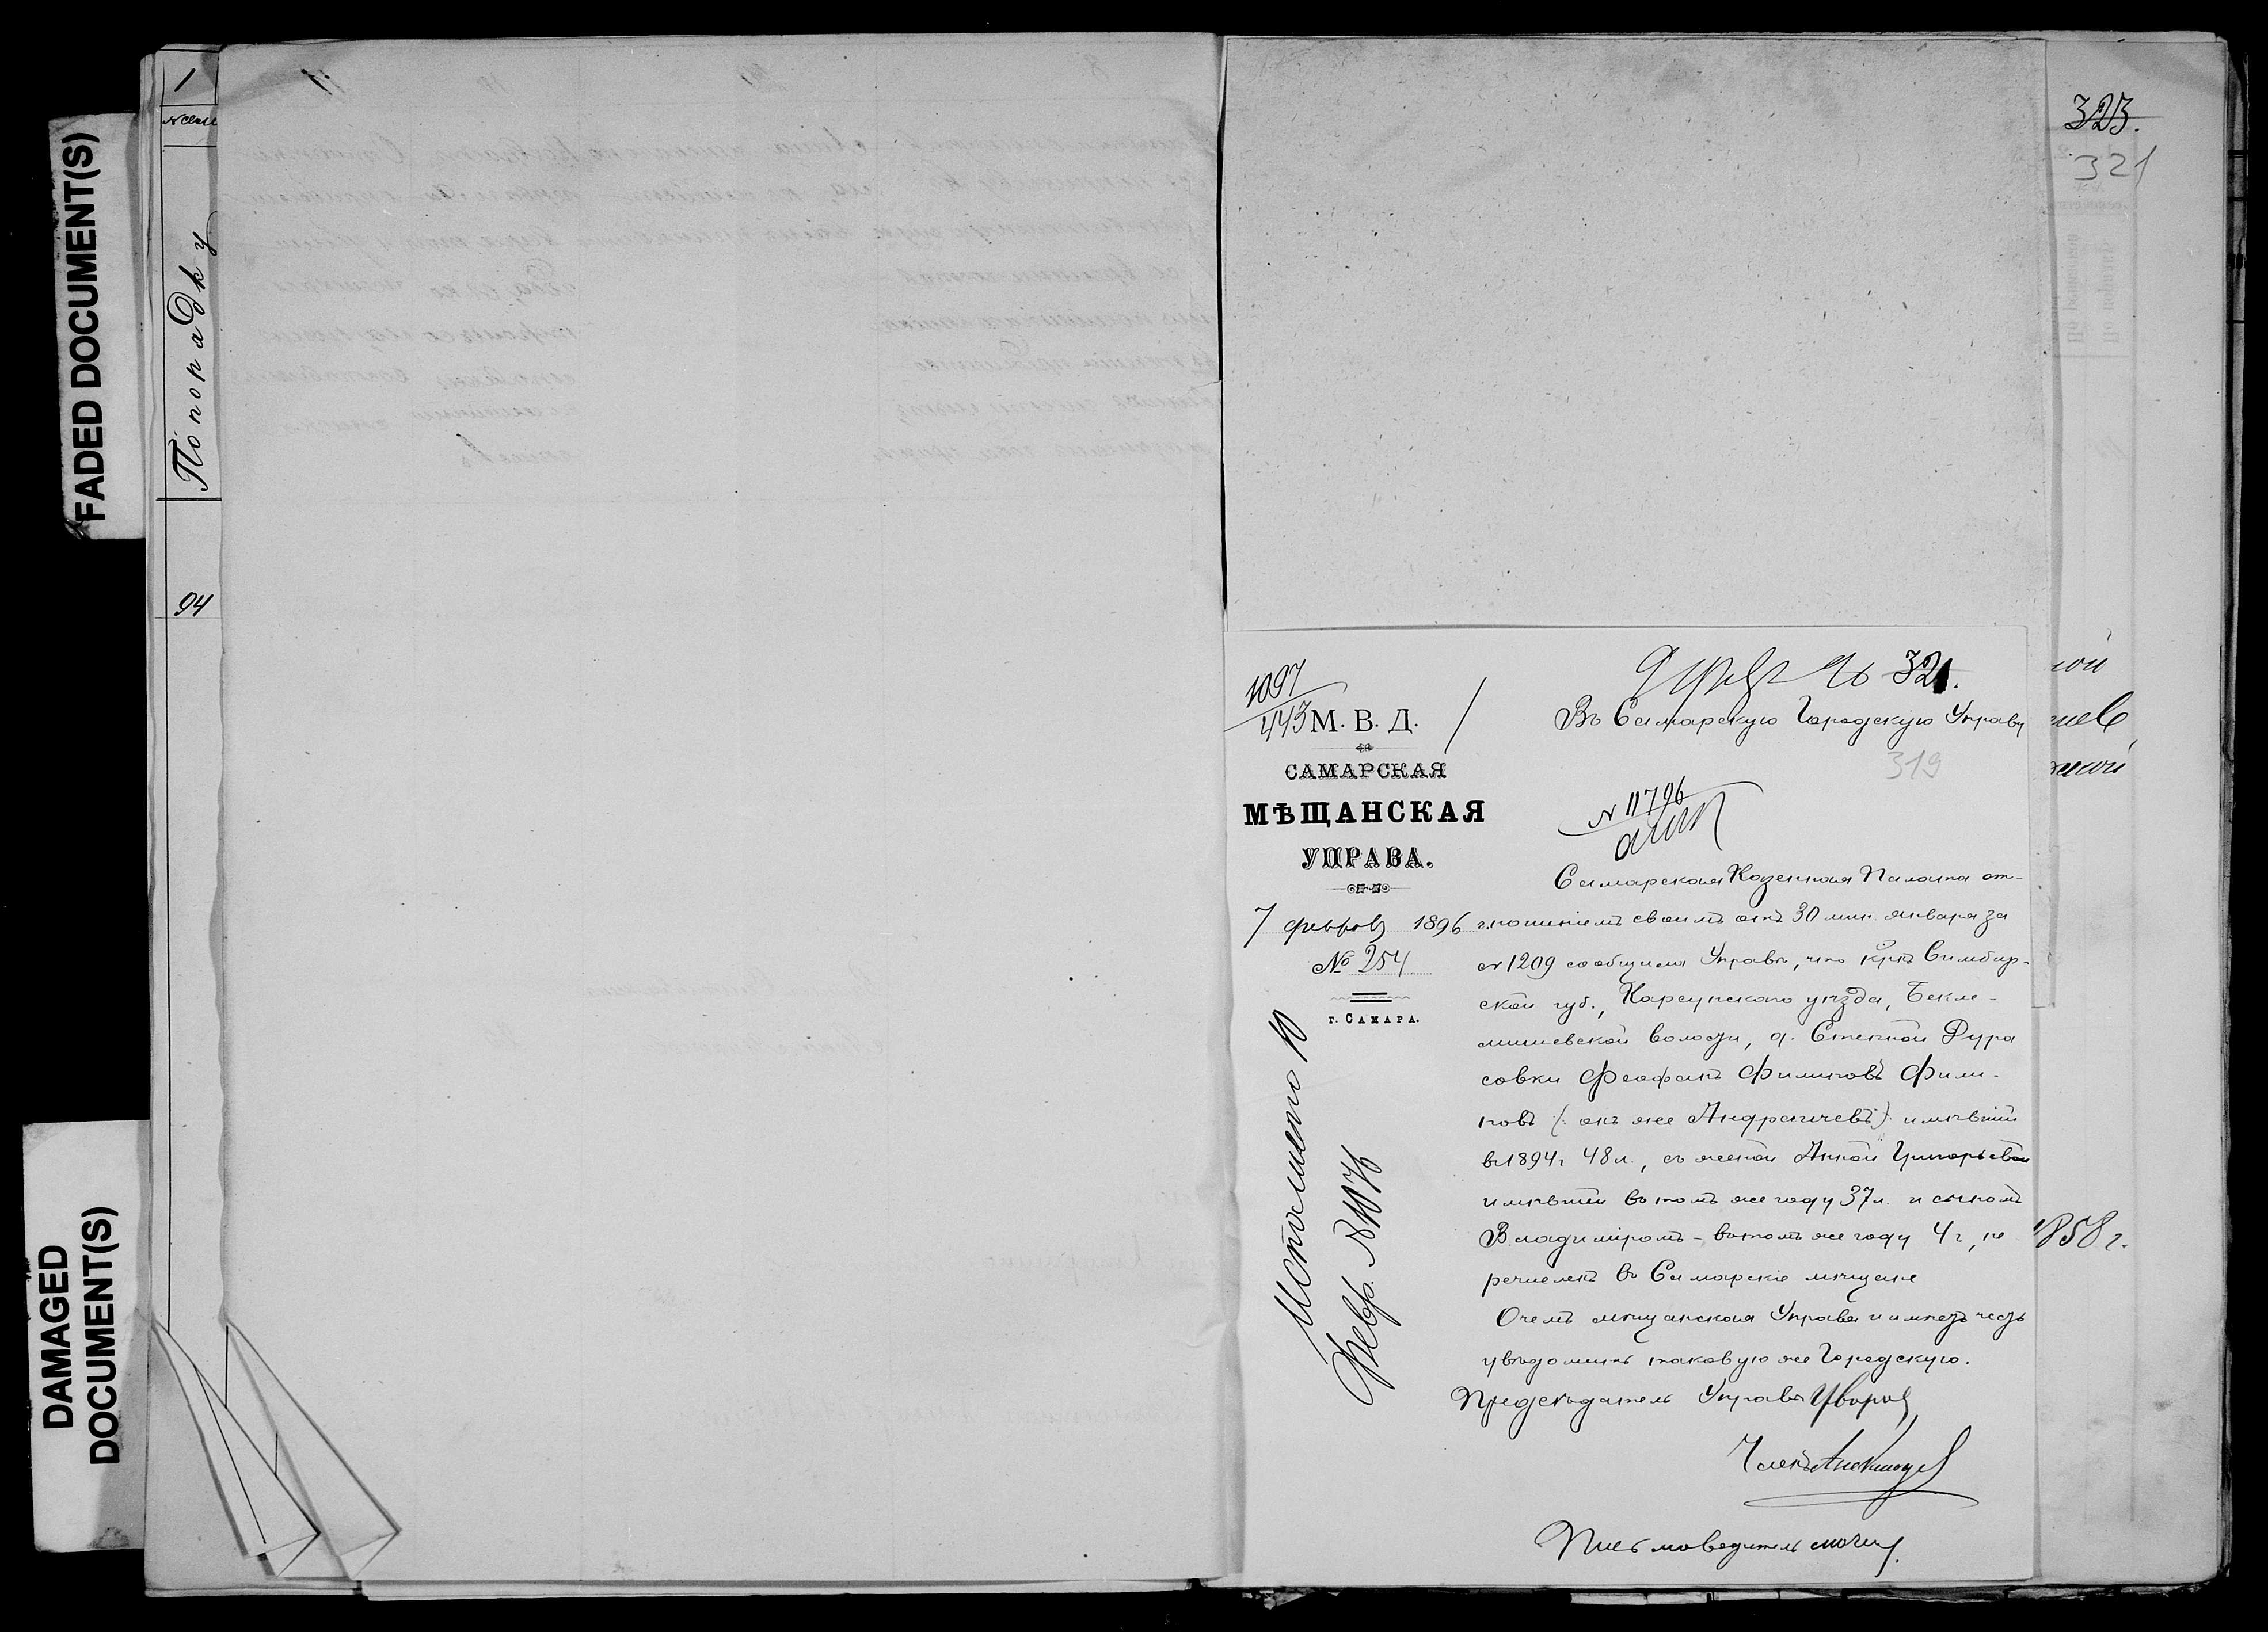 FADED DOCUMENT(S)
DAMAGED
DOCUMENT(S)
1
По порядку
94
323.
321
1097
443
М. В. Д.
САМАРСКАЯ
МѢЩАНСКАЯ
УПРАВА.
7 февр 1896 г.
№ 254
г. САМАРА.
Исполнено 10
Февр. № 1076
9 февр 96 321.
Въ Самарскую Городскую Управу
319
№ 11796
Самарская Казенная Палата от-
ношеніемъ своимъ отъ 30 мин. января за
№ 1209 сообщила Управѣ, что кр. Симбир-
ской губ., Карсунскаго уѣзда, Бекле-
мишевской волости, д. Степной Дура
совки Феофанъ Филиповъ Фили-
повъ (онъ же Андреичевъ) имѣвшій
въ 1894 г 48 л., съ женой Анной Григорьевой
имѣвшей въ томъ же году 37 л. и сыномъ
Владиміромъ - въ томъ же году 4 г, пе
речисленъ въ Самарскіе мѣщане
О чемъ мѣщанская Управа и имѣетъ честь
увѣдомить таковую же Городскую.
Предсѣдатель Управы
Членъ
Письмоводитель
1858 г.